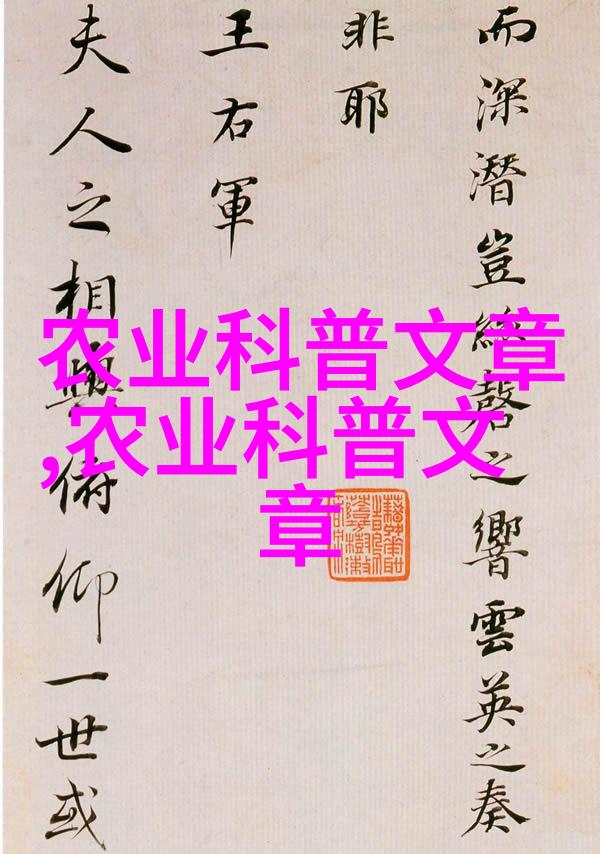 而深潛豈磬之響雲英之奏
非耶
王右軍
夫人之相與俯仰一世或
农业科普文章
,农业科普文
章